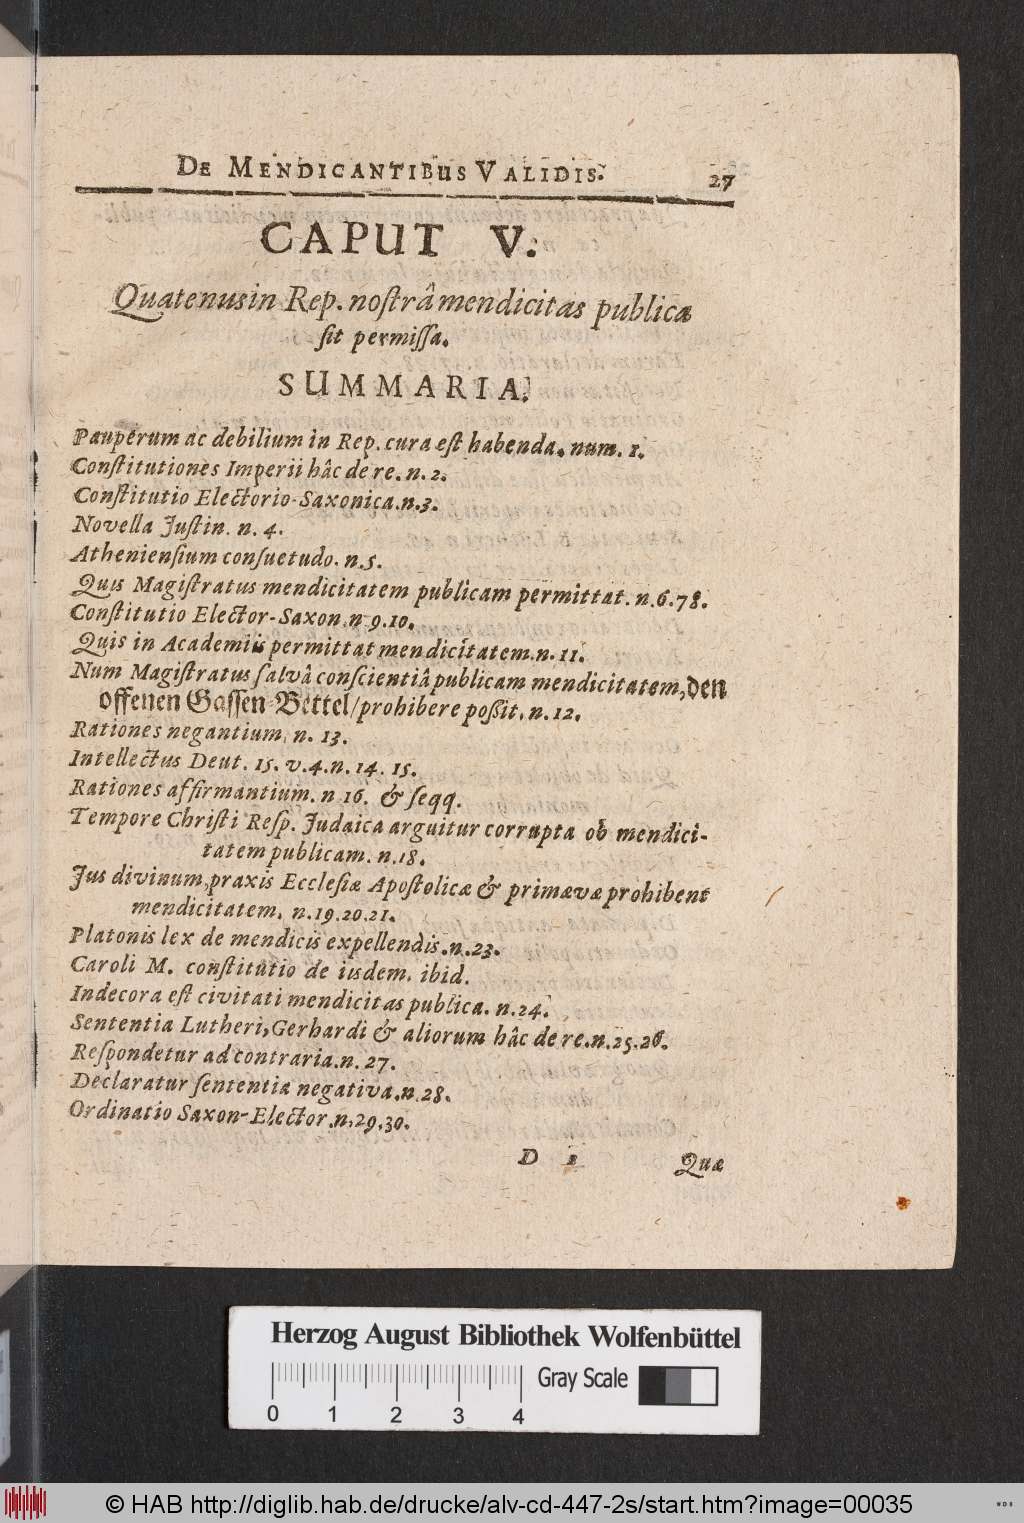 DE MENDICANTIBUS VALIDIS. 27
CAPUT V.
Quatenus in Rep. noſtrâ mendicitas publica
ſit permiſſa.
SUMMARIA.
Pauperum ac debilium in Rep. cura eſt habenda. num. 1.
Conſtitutiones Imperii hâc de re. n. 2.
Conſtitutio Electorio-Saxonica. n. 3.
Novella Juſtin. n. 4.
Athenienſium conſuetudo. n. 5.
Quis Magiſtratus mendicitatem publicam permittat. n. 6. 78.
Conſtitutio Elector-Saxon. n 9. 10.
Quis in Academiis permittat mendicitatem. n. 11.
Num Magiſtratus ſalvâ conſcientiâ publicam mendicitatem, den
offenen Gaſſen-Bettel/ prohibere poßit. n. 12.
Rationes negantium. n. 13.
Intellectus Deut. 15. v. 4. n. 14. 15.
Rationes affirmantium. n 16. & ſeqq.
Tempore Chriſti Reſp. Judaica arguitur corrupta ob mendici-
tatem publicam. n. 18.
Jus divinum, praxis Eccleſiæ Apoſtolicæ & primævæ prohibent
mendicitatem. n. 19. 20. 21.
Platonis lex de mendicis expellendis. n. 23.
Caroli M. conſtitutio de iisdem. ibid.
Indecora eſt civitati mendicitas publica. n. 24.
Sententia Lutheri, Gerhardi & aliorum hâc de re. n. 25. 26.
Reſpondetur ad contraria. n. 27.
Declaratur ſententia negativa. n. 28.
Ordinatio Saxon-Elector. n. 29. 30.
D 2 Quæ
Herzog August Bibliothek Wolfenbüttel
0 1 2 3 4 Gray Scale
© HAB http://diglib.hab.de/drucke/alv-cd-447-2s/start.htm?image=00035